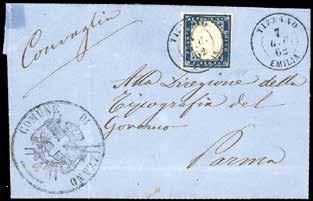 Convaglia
TIZZANO
62
TIZZANO
7
62
EMILIA
Alla Direzione della
Tipografia del
Governo
Parma
COMUNE DI TIZZANO